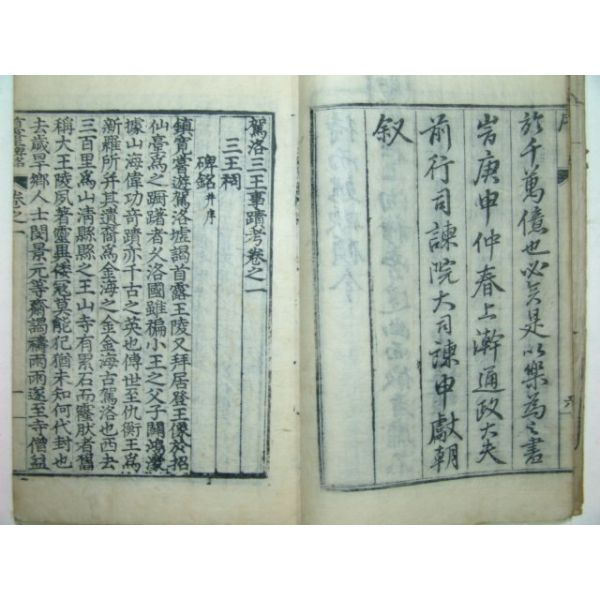 於千萬億也必矣是以樂為之書
岩庚申仲春上澣通政大夫
前行司諫院大司諫申獻朝
叙
駕洛三王事蹟考卷之一
三王祠
碑銘 幷序
鎭寛嘗遊駕洛墟謁首露王陵又拜居登王像於招
仙臺爲之踟躇者久洛國雖褊小王之父子闢鴻濛
據山海偉功竒蹟亦千古之英也傳世至仇衡王爲
新羅所并其遺裔爲金海之金金海古駕洛也西去
三百里爲山淸縣縣之王山寺有累石而壟肰者舊
稱大王陵夙著靈異倭冦莫能犯猶未知何代封也
去歲旱鄕人士閔景元等齋謁禱雨雨遂至寺僧益